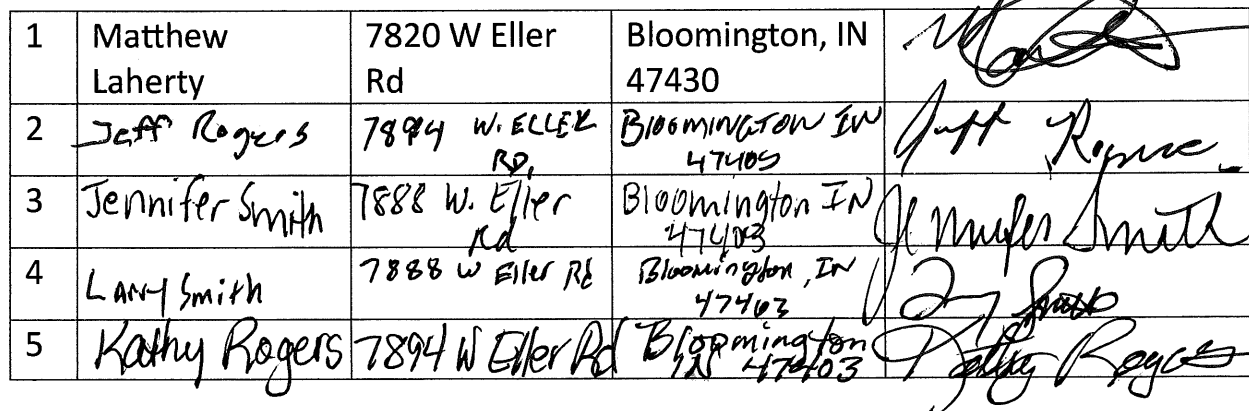 1 Matthew Laherty 7820 W Eller Rd Bloomington, IN 47430
2 Jeff Rogers 7894 W. ELLER RD, BLOOMINGTON IN 47403 Jeff Rogers
3 Jennifer Smith 7888 W. Eller Rd Bloomington IN 47403 Jennifer Smith
4 Larry Smith 7888 W Eller Rd Bloomington, IN 47403 Larry Smith
5 Kathy Rogers 7894 W Eller Rd Bloomington IN 47403 Kathy Rogers